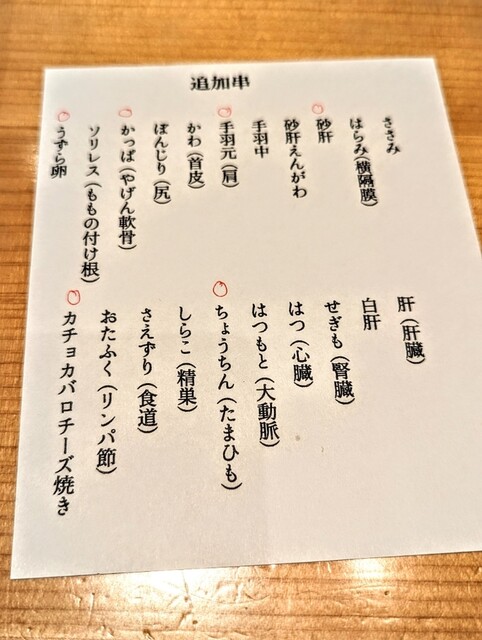 追加串
ささみ
はらみ(横隔膜)
砂肝
砂肝えんがわ
手羽中
手羽元(肩)
かわ(首皮)
ぼんじり(尻)
かっぱ(やげん軟骨)
ソリレス(ももの付け根)
うずら卵
肝(肝臓)
白肝
せぎも(腎臓)
はつ(心臓)
はつもと(大動脈)
ちょうちん(たまひも)
しらこ(精巣)
さえずり(食道)
おたふく(リンパ節)
カチョカバロチーズ焼き